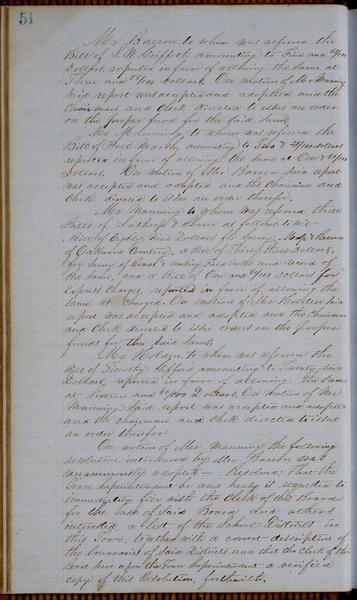 51
Mr Barrow to whom was referred the
Bill of S. W. Griffith amounting to Five and /100
Dollars, reported in favor of allowing the same at
Three and /100 Dollars. On motion of Mr Manning
said report was accepted and adopted and the
Chairman and Clerk directed to issue an order
on the proper fund for the said sum.
Mr Manning to whom was referred the
Bill of Fred Marsh, amounting to Two & /100 Dollars
reported in favor of allowing the same at One & /100
Dollars. On Motion of Mr Barrow said report
was accepted and adopted and the Chairman and
Clerk directed to issue an order therefor.
Mr Manning to whom was referred three
Bills of & as follows to wit—
Bill of Eighty Nine Dollars for Survey, Map & Record
of Oakwood Cemetery, a Bill of Dollars,
for Survey of Road & making Field Notes and record of
the same, and a Bill of One and /100 Dollars for
Express Charges, reported in favor of allowing the
same at Charged. On motion of Mr Holden said
report was accepted and adopted and the Chairman
and Clerk directed to issue orders on the proper
funds for the said sums.
Mr Holden to whom was referred the
Bill of Timothy Gifford amounting to Twenty-two
Dollars, reported in favor of allowing the same
at Sixteen and /100 Dollars. On motion of Mr
Manning said report was accepted and adopted
and the Chairman and Clerk directed to issue
an order therefor.
On motion of Mr Manning the following
resolution, introduced by Mr Barrow was
unanimously adopted— Resolved, That the
Town Superintendent be and hereby is requested to
immediately file with the Clerk of this Board
for the use of said Board and others
interested a list of the School Districts in
this Town, together with a correct description of
the boundaries of said Districts and that the Clerk of this
Board serve upon the Town Superintendent a verified
copy of this Resolution, forthwith.